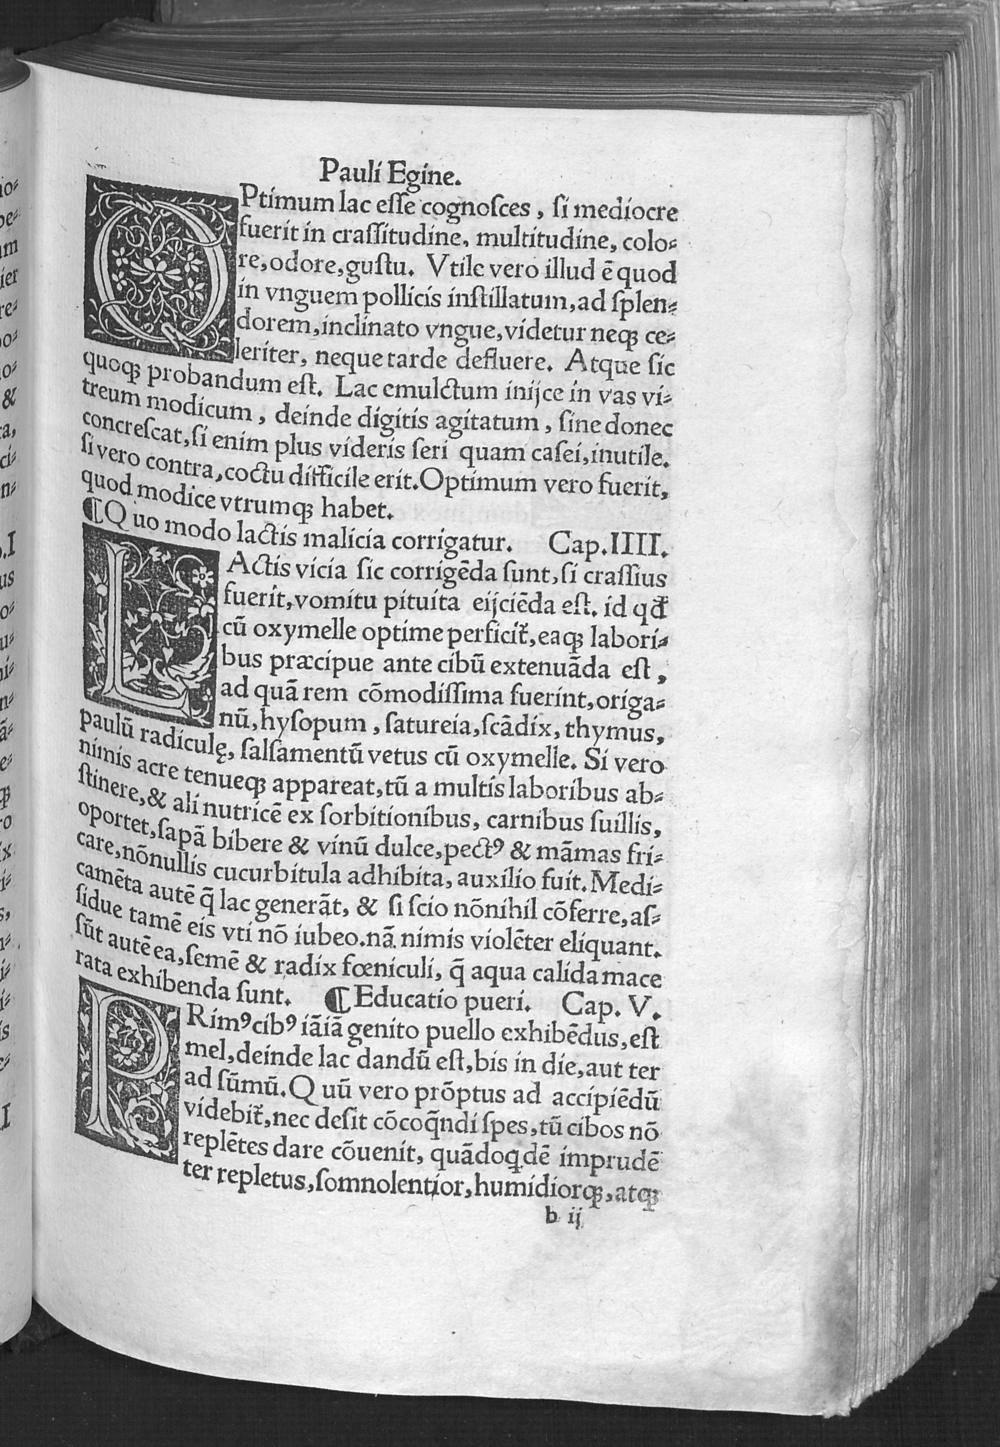 Pauli Egine.
OPtimum lac esse cognosces, si mediocre
fuerit in crassitudine, multitudine, colo-
re, odore, gustu. Vtile vero illud ē quod
in vnguem pollicis instillatum, ad splen-
dorem, inclinato vngue, videtur neqꝫ ce-
leriter, neque tarde defluere. Atque sic
quoqꝫ probandum est. Lac emulctum inijce in vas vi-
treum modicum, deinde digitis agitatum, sine donec
concrescat, si enim plus videris seri quam casei, inutile.
si vero contra, coctu difficile erit. Optimum vero fuerit,
quod modice vtrumqꝫ habet.
¶Quo modo lactis malicia corrigatur. Cap. IIII.
LActis vicia sic corrigēda sunt, si crassius
fuerit, vomitu pituita eijciēda est. id qđ
cū oxymelle optime perficit̃, eaqꝫ labori-
bus præcipue ante cibū extenuāda est,
ad quā rem cōmodissima fuerint, origa-
nū, hysopum, satureia, scādix, thymus,
paulū radiculę, salsamentū vetus cū oxymelle. Si vero
nimis acre tenueqꝫ appareat, tū a multis laboribus ab-
stinere, & ali nutricē ex sorbitionibus, carnibus suillis,
oportet, sapā bibere & vinū dulce, pectꝰ & māmas fri-
care, nōnullis cucurbitula adhibita, auxilio fuit. Medi-
camēta autē q̄ lac generāt, & si scio nōnihil cōferre, as-
sidue tamē eis vti nō iubeo. nā nimis violēter eliquant.
sūt autē ea, semē & radix fœniculi, q̄ aqua calida mace
rata exhibenda sunt. ¶Educatio pueri. Cap. V.
PRimꝰ cibꝰ iāiā genito puello exhibēdus, est
mel, deinde lac dandū est, bis in die, aut ter
ad sūmū. Quū vero prōptus ad accipiēdū
videbit̃, nec desit cōcoq̄ndi spes, tū cibos nō
replētes dare cōuenit, quādoqdē imprudē
ter repletus, somnolentior, humidiorqꝫ, atqꝫ
b ij